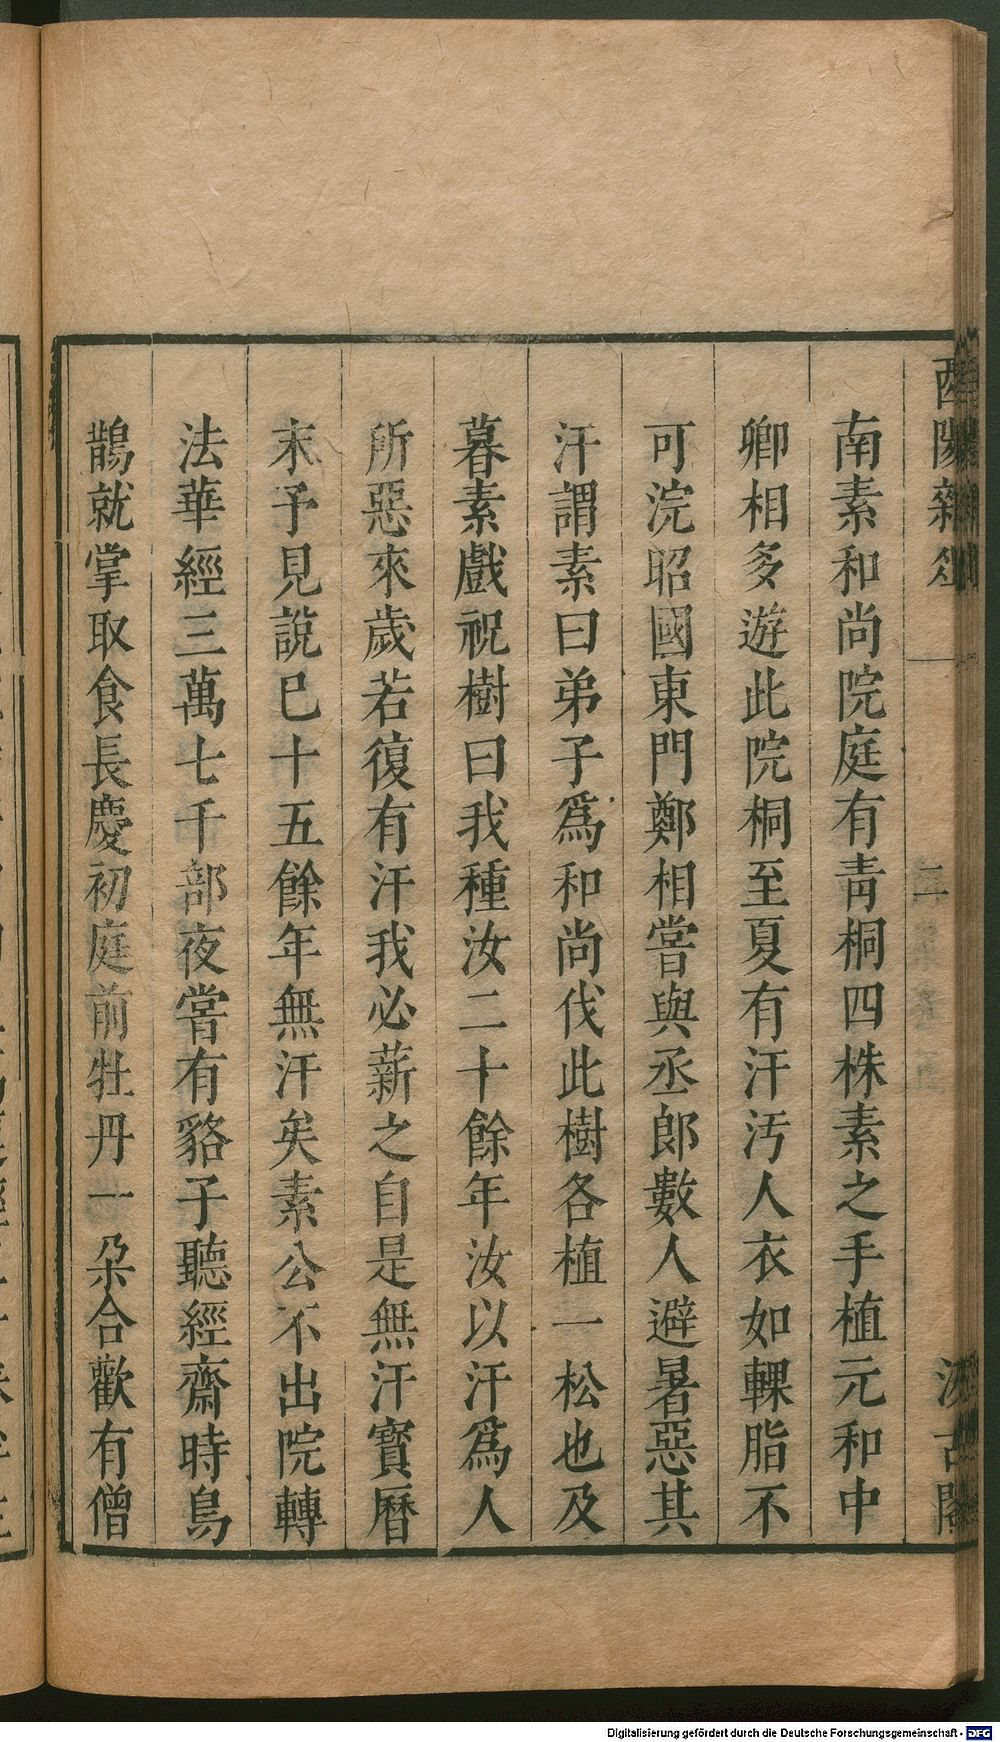 酉陽雜俎
三
汲古閣
南素和尚院庭有靑桐四株素之手植元和中
卿相多遊此院桐至夏有汗汚人衣如輠脂不
可浣昭國東門鄭相嘗與丞郎數人避暑惡其
汗謂素曰弟子爲和尚伐此樹各植一松也及
暮素戲祝樹曰我種汝二十餘年汝以汗爲人
所惡來歲若復有汗我必薪之自是無汗寶曆
末予見說已十五餘年無汗矣素公不出院轉
法華經三萬七千部夜嘗有貉子聽經齋時鳥
鵲就掌取食長慶初庭前牡丹一朶合歡有僧
Digitalisierung gefördert durch die Deutsche Forschungsgemeinschaft - DFG